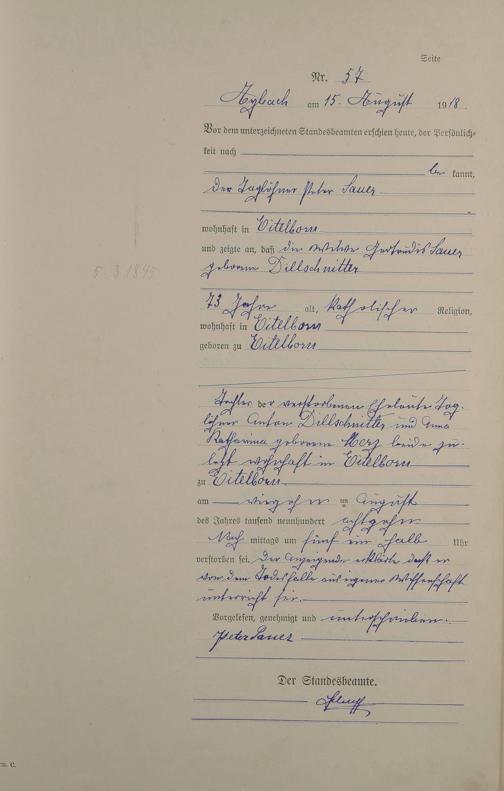 Seite
Nr. 57
Arzbach am 15. August 1918.
Vor dem unterzeichneten Standesbeamten erschien heute, der Persönlich-
keit nach
be kannt,
der Taglöhner Peter Sauer
wohnhaft in Eitelborn
und zeigte an, daß die Witwe Gertrudis Sauer
geborene Dillschnitter
5.3.1845
73 Jahre alt, katholischer Religion,
wohnhaft in Eitelborn
geboren zu Eitelborn
Tochter der verstorbenen Eheleute Tag-
löhner Anton Dillschnitter und Anna
Katharina geborene Merz beide zu-
letzt wohnhaft in Eitelborn
zu Eitelborn
am vierzehn ten August
des Jahres tausend neunhundert achtzehn
Nach mittags um fünf ein halb Uhr
verstorben sei. Der Anzeigende erklärte daß er
von dem Todesfalle aus eigener Wissenschaft
unterricht sei.
Vorgelesen, genehmigt und unterschrieben.
Peter Sauer
Der Standesbeamte.
C.